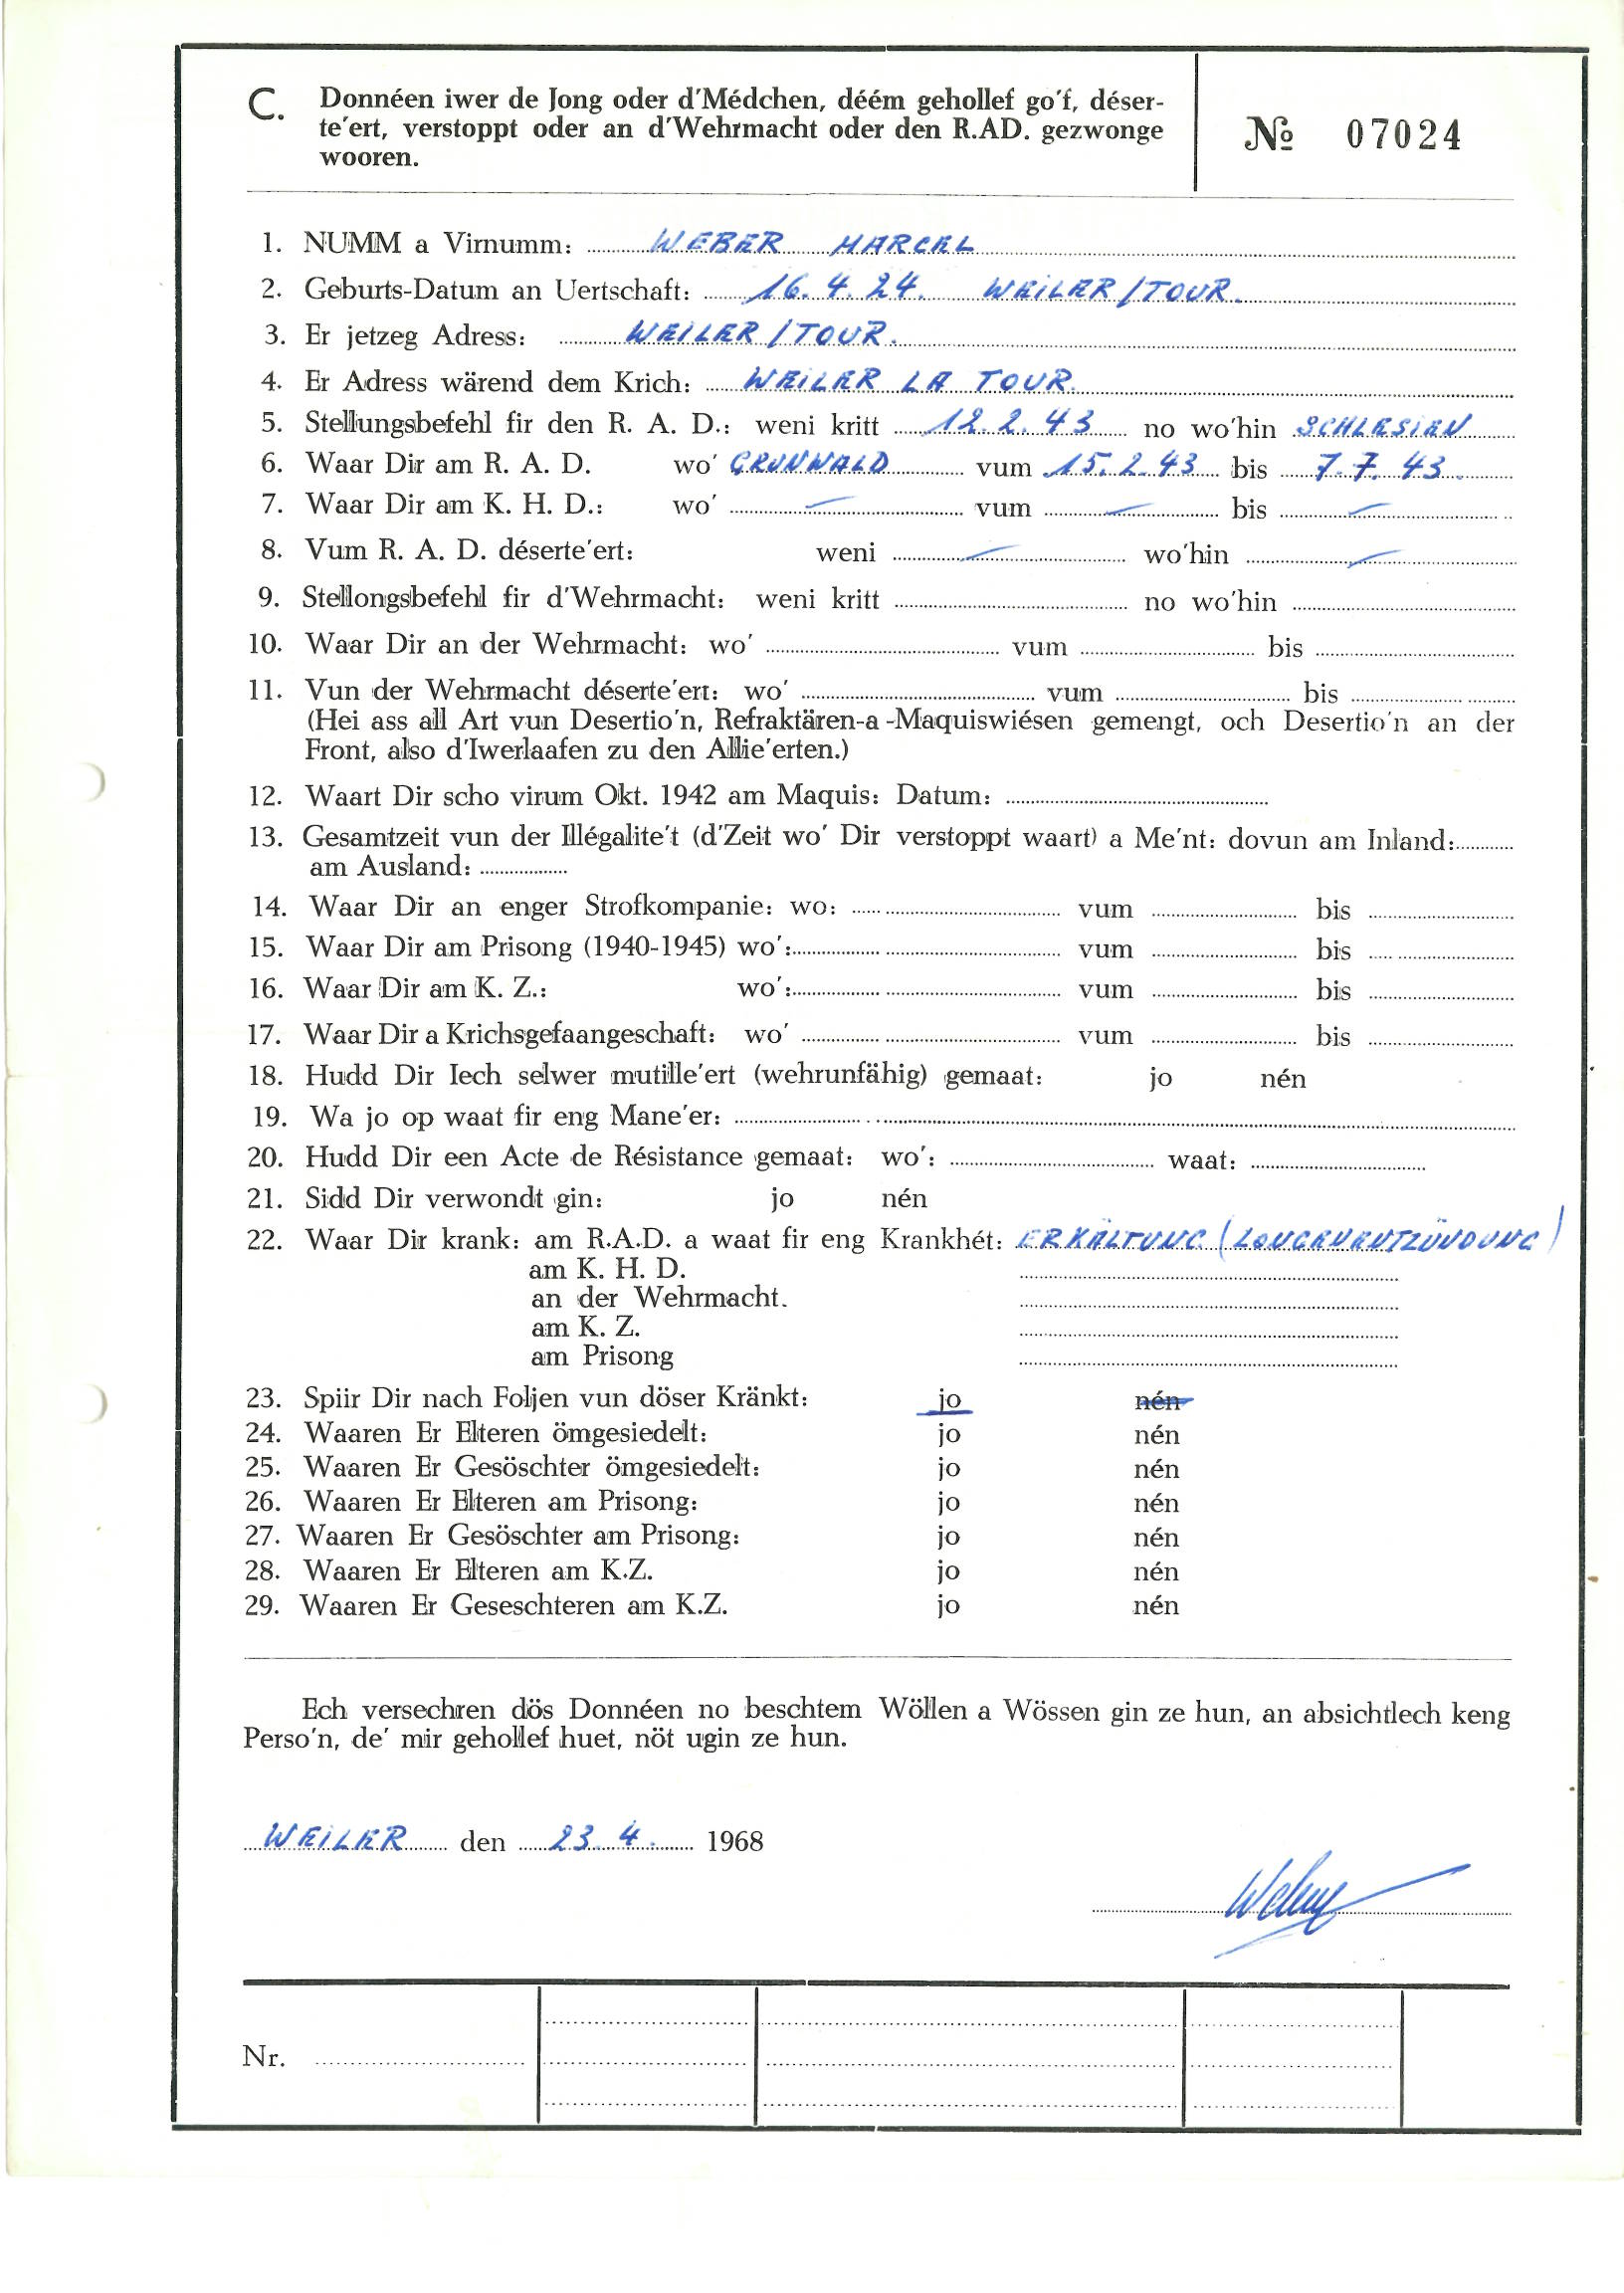 C. Donnéen iwer de Jong oder d'Médchen, déém gehollef go'f, déser-
te'ert, verstoppt oder an d'Wehrmacht oder den R.AD. gezwonge
wooren.
№ 07024
1. NUMM a Virnumm: WEBER MARCEL
2. Geburts-Datum an Uertschaft: 16.4.24. WEILER/TOUR.
3. Er jetzeg Adress: WEILER/TOUR.
4. Er Adress wärend dem Krich: WEILER LA TOUR.
5. Stellungsbefehl fir den R. A. D.: weni kritt 12.2.43 no wo'hin SCHLESIEN
6. Waar Dir am R. A. D. wo' GRUNWALD vum 15.2.43 bis 7.7.43.
7. Waar Dir am K. H. D.: wo' — vum — bis —
8. Vum R. A. D. déserte'ert: weni — wo'hin —
9. Stellongsbefehl fir d'Wehrmacht: weni kritt no wo'hin
10. Waar Dir an der Wehrmacht: wo' vum bis
11. Vun der Wehrmacht déserte'ert: wo' vum bis
(Hei ass all Art vun Desertio'n, Refraktären-a-Maquiswiésen gemengt, och Desertio'n an der
Front, also d'Iwerlaafen zu den Allie'erten.)
12. Waart Dir scho virum Okt. 1942 am Maquis: Datum:
13. Gesamtzeit vun der Illégalite't (d'Zeit wo' Dir verstoppt waart) a Me'nt: dovun am Inland:
am Ausland:
14. Waar Dir an enger Strofkompanie: wo: vum bis
15. Waar Dir am Prisong (1940-1945) wo': vum bis
16. Waar Dir am K. Z.: wo': vum bis
17. Waar Dir a Krichsgefaangeschaft: wo' vum bis
18. Hudd Dir Iech selwer mutille'ert (wehrunfähig) gemaat: jo nén
19. Wa jo op waat fir eng Mane'er:
20. Hudd Dir een Acte de Résistance gemaat: wo': waat:
21. Sidd Dir verwondt gin: jo nén
22. Waar Dir krank: am R.A.D. a waat fir eng Krankhét: ERKÄLTUNG (LUNGENENTZÜNDUNG)
am K. H. D.
an der Wehrmacht.
am K. Z.
am Prisong
23. Spiir Dir nach Foljen vun döser Kränkt: jo nén
24. Waaren Er Elteren ömgesiedelt: jo nén
25. Waaren Er Gesöschter ömgesiedelt: jo nén
26. Waaren Er Elteren am Prisong: jo nén
27. Waaren Er Gesöschter am Prisong: jo nén
28. Waaren Er Elteren am K.Z. jo nén
29. Waaren Er Geseschteren am K.Z. jo nén
Ech versechren dös Donnéen no beschtem Wöllen a Wössen gin ze hun, an absichtlech keng
Perso'n, de' mir gehollef huet, nöt ugin ze hun.
WEILER den 23.4. 1968
Weber
Nr.